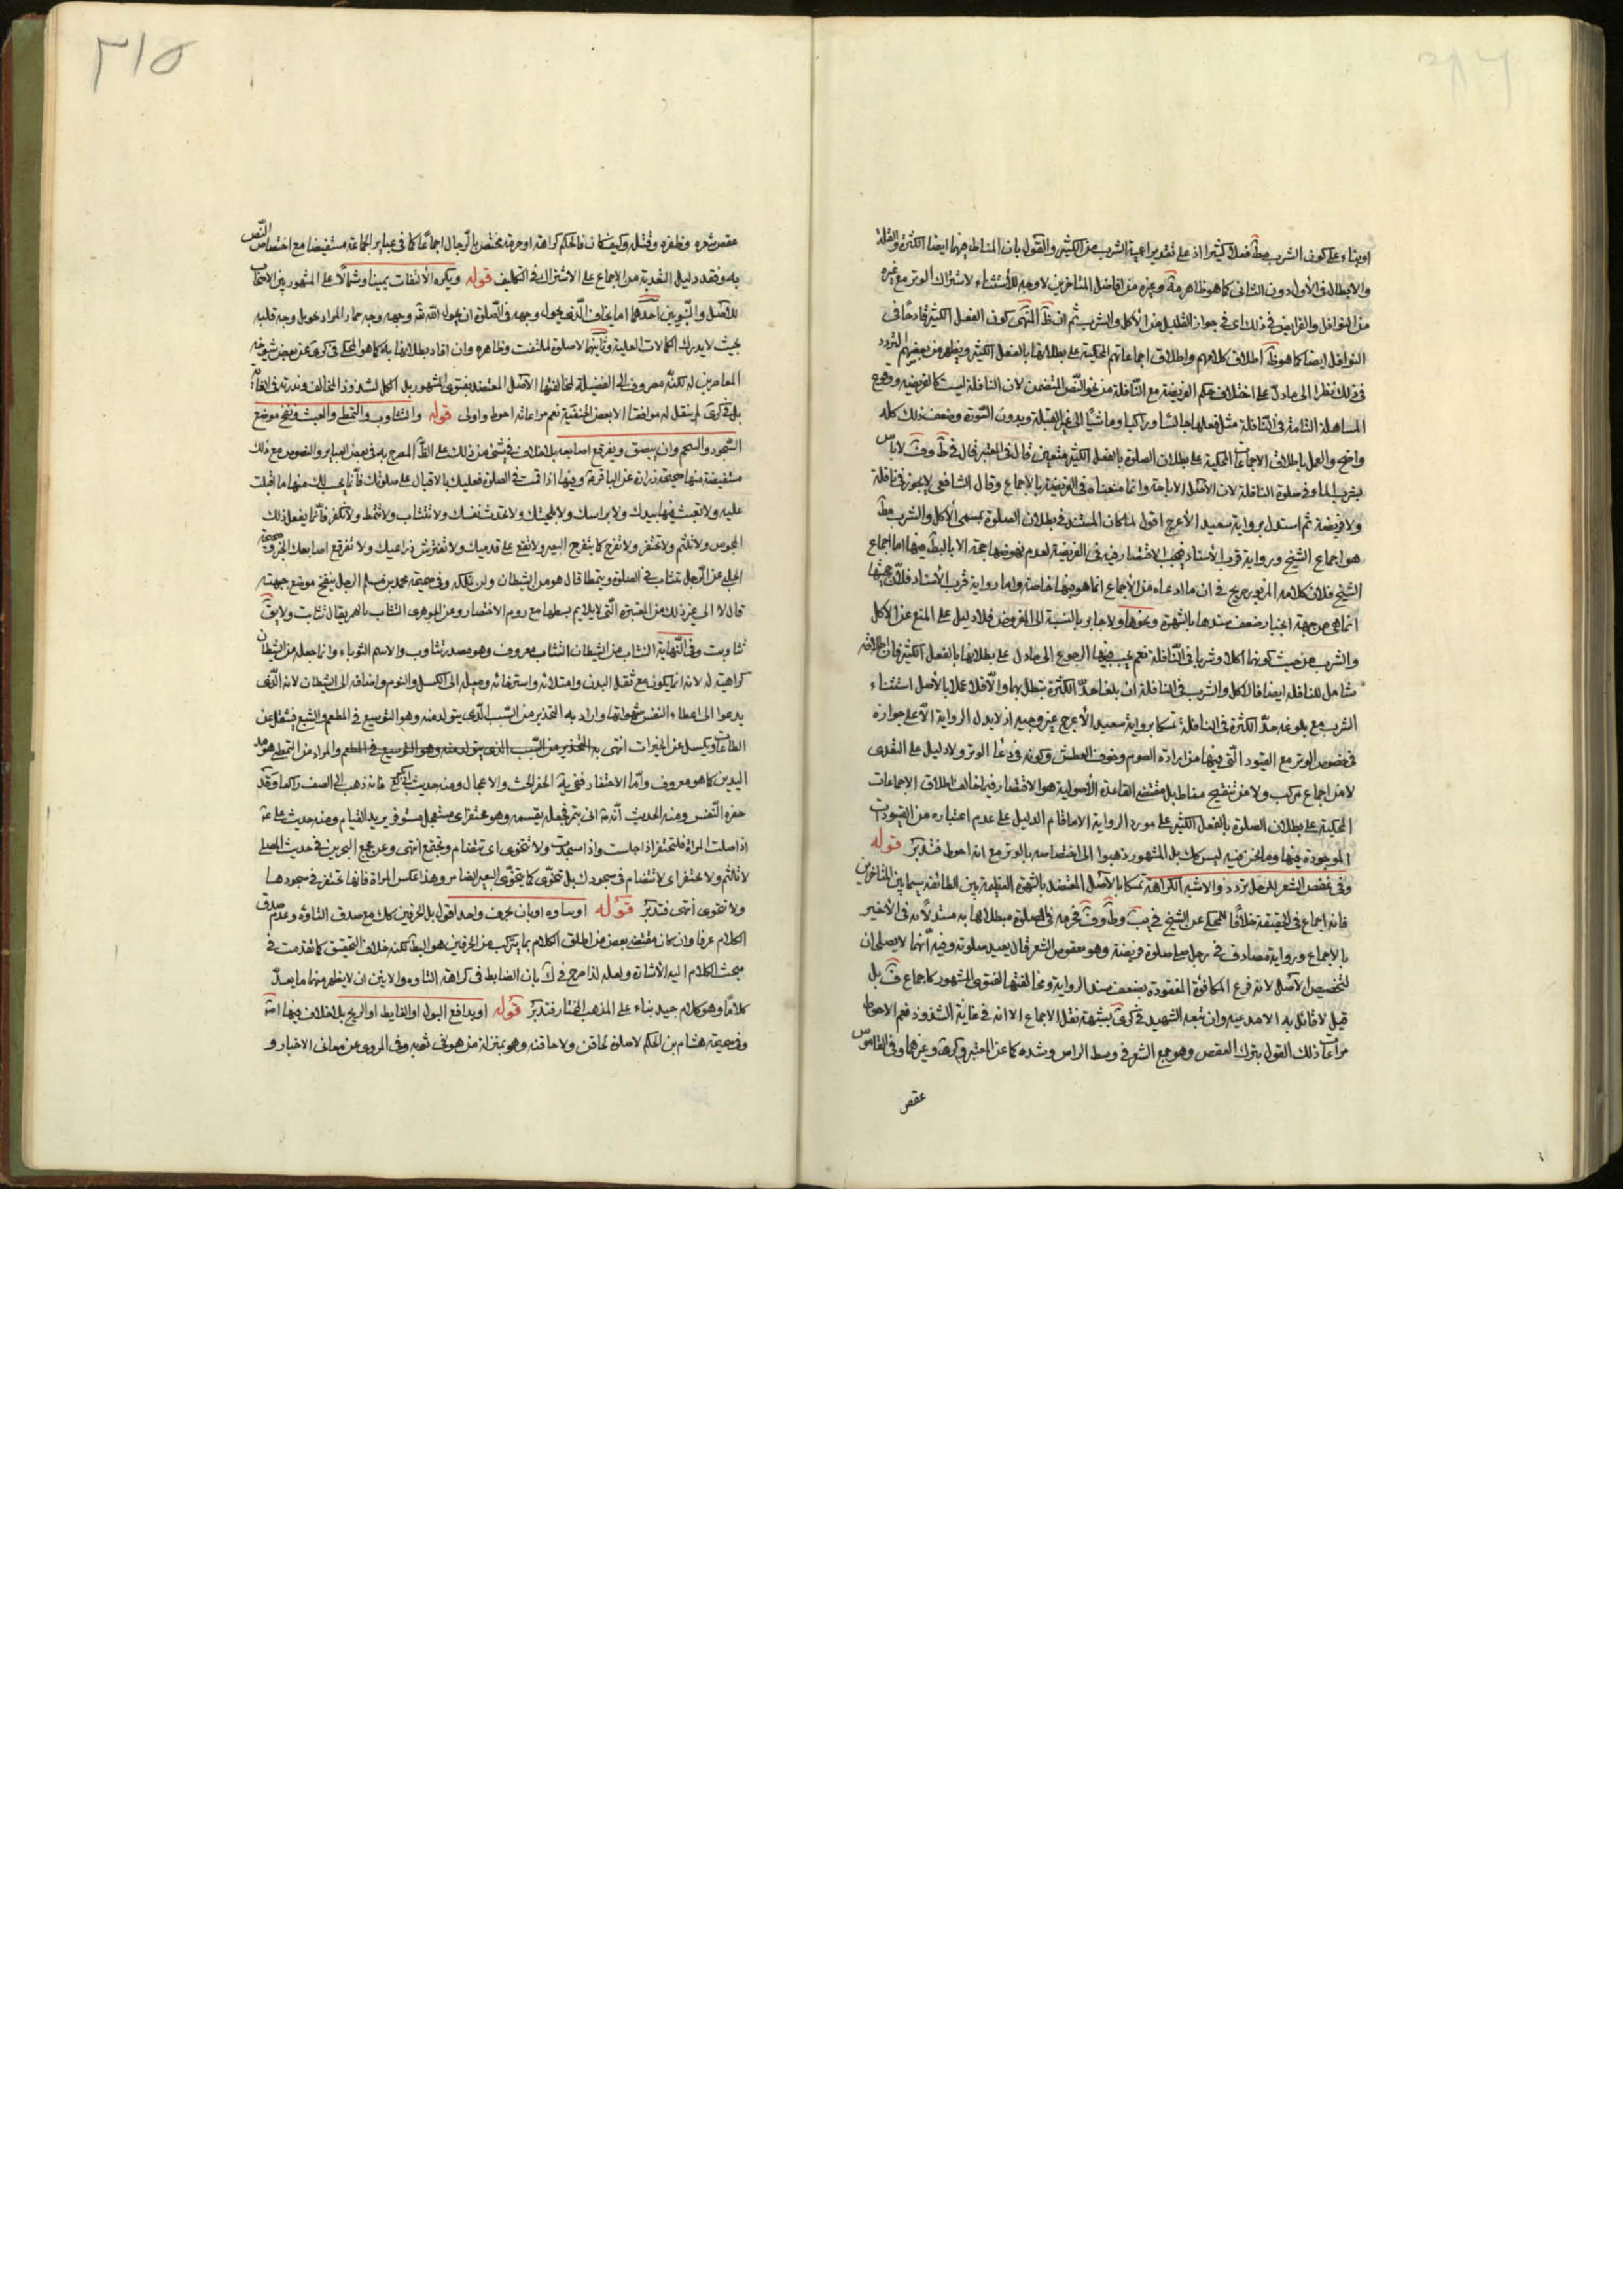 او بناء على كون الشرب مط فعلا كثيرا اذ على تقدير اعمية الشرب من الكثير والقول بان المناط فيهما ايضا الكثرة والقلة
والابطال في الأول دون الثانى كما هو ظاهر مة وغيره من افاضل المتاخرين لا وجه للأستثناء لاشتراك الوتر مع غيره
من النوافل والفرايض في ذلك اى في جواز القليل من الأكل والشرب ثم ان ظ المنتهى كون الفعل الكثير قادحا فى
النوافل ايضا كما هو ظ اطلاق كلامهم واطلاق اجماعاتهم المحكية على بطلانها بالفعل الكثير ويظهر من بعضهم التردد
فى ذلك نظرا الى ما دل على اختلاف حكم الفريضة مع النافلة من نحو النص المتضمن لان النافلة ليست كالفريضه ووقوع
المساهلة التامة في النافلة مثل فعلها جالسا وراكبا وماشيا الى غير القبلة وبدون السورة وضعف ذلك كله
واضح والعمل باطلاق الاجماعات المحكية على بطلان الصلوة بالفعل الكثير متعين قال فى المعتبر قال في ط وف لا باس
بشرب الماء في صلوة النافلة لان الأصل الاباحة وانما منعناه في الفريضة بالأجماع وقال الشافعى لا يجوز في نافلة
ولا فريضة ثم استدل برواية سعيد الأعرج اقول لما كان المستند في بطلان الصلوة بمسمى الأكل والشرب مط
هو اجماع الشيخ ورواية قرب الأسناد فيجب الاقتصار فيه على الفريضة لعدم نهوضهما حجة الا بالبط فيها اما اجماع
الشيخ فلان كلامه المزبور صريح في ان ما ادعاه من الأجماع انما هو فيها خاصة واما رواية قرب الأسناد فلان حجيتها
انما هى من جهة اعتبار ضعف سندها بالشهرة ونحوها ولا جابر بالنسبة الى المفروض فلا دليل على المنع عن الاكل
والشرب من حيث كونهما اكلا وشربا فى النافلة نعم يجب فيهما الرجوع الى ما دل على بطلانها بالفعل الكثير فان اطلاقه
شامل للنافلة ايضا فالاكل والشرب فى النافلة ان بلغا حد الكثرة تبطل بهما والا فلا عملا بالأصل استثناء
الشرب مع بلوغه حد الكثرة في النافلة تمسكا برواية سعيد الأعرج غير وجيه اذ لا يدل الرواية الا على جوازه
فى خصوص الوتر مع القيود التى فيها من ارادة الصوم وخوف العطش وكونه في دعاء الوتر ولا دليل على التعدى
لا من اجماع مركب ولا من تنقيح مناط بل مقتضى القاعدة الأصولية هو الاقتصار فيما خالف اطلاق الاجماعات
المحكية على بطلان الصلوة بالفعل الكثير على مورد الرواية الا ما قام الدليل على عدم اعتباره من القيودات
الموجودة فيها وما نحن فيه ليس كك بل المشهور ذهبوا الى اختصاصه بالوتر مع انه احوط فتدبر قوله
وفى عقص الشعر للرجل تردد والاشبه الكراهة تمسكا بالأصل المعتضد بالشهرة العظيمة بين الطائفه سيما بين المتاخرين
فانه اجماع فى الحقيقة خلافا للمحكى عن الشيخ في يب وط وف فحرمه فى الصلوة مبطلا لها به مستدلا به في الأخير
بالأجماع ورواية مصادف في رجل صلى صلوة فريضة وهو معقوص الشعر قال يعيد صلوته وفيه انهما لا يصلحان
لتخصيص الأصل لانه فرع المكافؤة المفقودة بضعف سند الرواية ومخالفتها لفتوى المشهور كاجماع ف بل
قيل لا قائل به الا مدعيه وان تبعه الشهيد في كرى بشبهة نقل الاجماع الا انه في غاية الشذوذ فنعم الاحوط
مراعات ذلك القول بترك العقص وهو جمع الشعر في وسط الراس وشده كما عن المعتبر وكره وغيرهما وفى القاموس
عقص
٣١٥
عقص شعره وظفره وفتله وكيف كان فالحكم كراهة او حرمة مختص بالرجال اجماعا كما فى عباير الجماعة مستفيضا مع اختصاص النص
به وفقد دليل التعدية من الاجماع على الاشتراك في التكليف قوله ويكره الالتفات يمينا وشمالا على المشهور بين الاصحاب
للأصل والنبويين احدهما اما يخاف الذى يحول وجهه فى الصلوة ان يحول الله تع وجهه وجه حمار المراد تحويل وجه قلبه
بحيث لا يدرك الكمالات العلية وثانيهما لا صلوة لملتفت وظاهره وان افاد بطلانها به كما هو المحكى فى كرى عن بعض شيوخه
المعاصرين له لكنه مصروف الى الفضيلة لمخالفتها الأصل المعتضد بفتوى المشهور بل الكل لشذوذ المخالف وندرته فى الغاية
بل في كرى لم ينقل له موافقا الا بعض الحنفية نعم مراعاته احوط واولى قوله والتثاوب والتمطى والعبث ونفخ موضع
السجود والتنخم وان يبصق ويفرقع اصابعه بلا خلاف في شئ من ذلك على الظ المصرح به في بعض العباير والنصوص مع ذلك
مستفيضة منها صحيحة زرارة عن الباقر ع وفيها اذا قمت في الصلوة فعليك بالاقبال على صلوتك فانما يحسب لك منها ما اقبلت
عليه ولا تعبث فيها بيدك ولا براسك ولا بلحيتك ولا تحدث نفسك ولا تتثاب ولا تتمط ولا تكفر فانما يفعل ذلك
المجوس ولا تلثم ولا تحتفز ولا تفرج كما يتفرج البعير ولا تقع على قدميك ولا تفترش ذراعيك ولا تفرقع اصابعك الخبر وصحيحة
الحلبى عن الرجل يتثاب في الصلوة ويتمطا قال هو من الشيطان ولن يملكه وفي صحيحة محمد بن مسلم الرجل ينفخ موضع جبهته
قال لا الى غير ذلك من المعتبرة التى لا يلايم بسطها مع روم الاختصار وعن الجوهرى التثاب بالهمز يقال تثابت ولا يق
تثاوبت وفى النهاية التثاب من الشيطان التثاب معروف وهو مصدر تثاوب والاسم الثوباء وانما جعله من الشيطان
كراهية له لانه انما يكون مع ثقل البدن وامتلائه واسترخائه وميله الى الكسل والنوم واضافه الى الشيطان لانه الذى
يدعوا الى اعطاء النفس شهواتها واراد به التحذير من السبب الذى يتولد منه وهو التوسيع في المطعم والشبع فيثقل عن
الطاعات ويكسل عن الخيرات انتهى به التحذير من السبب الذى يتولد منه وهو التوسيع في المطعم والمراد من التمطى هو مد
اليدين كما هو معروف واما الاحتفاز ففى يه الحفز الحث والاعجال ومنه حديث ابى بكرة فانه ذهب الى الصف راكعا وقد
حفزه النفس ومنه الحديث انه ص اتى بتمر فجعل يقسمه وهو محتفز اى مستعجل مستوفز يريد القيام ومنه حديث على ع
اذا صلت المراة فلتحتفز اذا جلست واذا سجدت ولا تخوى اى تتضام وتجتمع انتهى وعن مجمع البحرين في حديث المصلى
لا تلثم ولا تحتفز اى لا تتضام فى سجودك بل تخوى كما يتخوى البعير الضامر وهذا عكس المراة فانها تحتفز في سجودها
ولا تخوى انتهى فتدبر قوله او يتاوه او يان بحرف واحد اقول بل الحرفين كك مع صدق التاوه وعدم صدق
الكلام عرفا وان كان مقتضى بعض من اطلق الكلام بما يتركب من الحرفين هو البط لكنه خلاف التحقيق كما تقدمت في
مبحث الكلام اليه الأشارة ولعله لذا صرح في ك بان الضابط فى كراهة التاوه والانين ان لا يظهر منهما ما يعد
كلاما وهو كلام جيد بناء على المذهب المختار فتدبر قوله او يدافع البول او الغايط او الريح بلا خلاف فيها اجده
وفى صحيحة هشام بن الحكم لا صلوة لحاقن ولا حاقنة وهو بمنزلة من هو فى ثوبه وفى المروى عن معانى الاخبار و